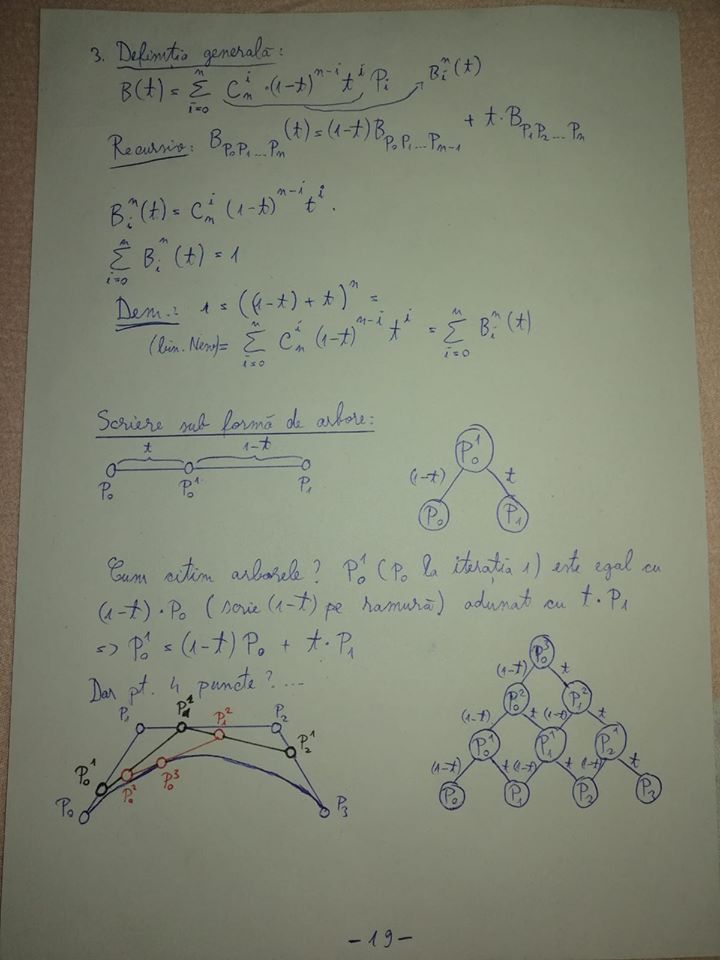 3. Definiția generală:
B(t) = Σ_{i=0}^{n} C_n^i · (1-t)^{n-i} t^i P_i B_i^n(t)
Recursiv: B_{P_0P_1...P_n}(t) = (1-t) B_{P_0P_1...P_{n-1}} + t · B_{P_1P_2...P_n}
B_i^n(t) = C_n^i (1-t)^{n-i} t^i.
Σ_{i=0}^{n} B_i^n(t) = 1
Dem.: 1 = ((1-t) + t)^n =
(bin. New) = Σ_{i=0}^{n} C_n^i (1-t)^{n-i} t^i = Σ_{i=0}^{n} B_i^n(t)
Scriere sub formă de arbore:
t 1-t
P_0 P_0^1 P_1
P_0^1
(1-t) t
P_0 P_1
Cum citim arborele? P_0^1 (P_0 la iterația 1) este egal cu
(1-t) · P_0 (scrie (1-t) pe ramură) adunat cu t · P_1
=> P_0^1 = (1-t) P_0 + t · P_1
Dar pt. 4 puncte? ....
P_1 P_1^1 P_1^2 P_2
P_0^1 P_0^2 P_0^3 P_2^1
P_0 P_3
P_0^3
(1-t) t
P_0^2 P_1^2
(1-t) t (1-t) t
P_0^1 P_1^1 P_2^1
(1-t) t (1-t) t (1-t) t
P_0 P_1 P_2 P_3
- 19 -